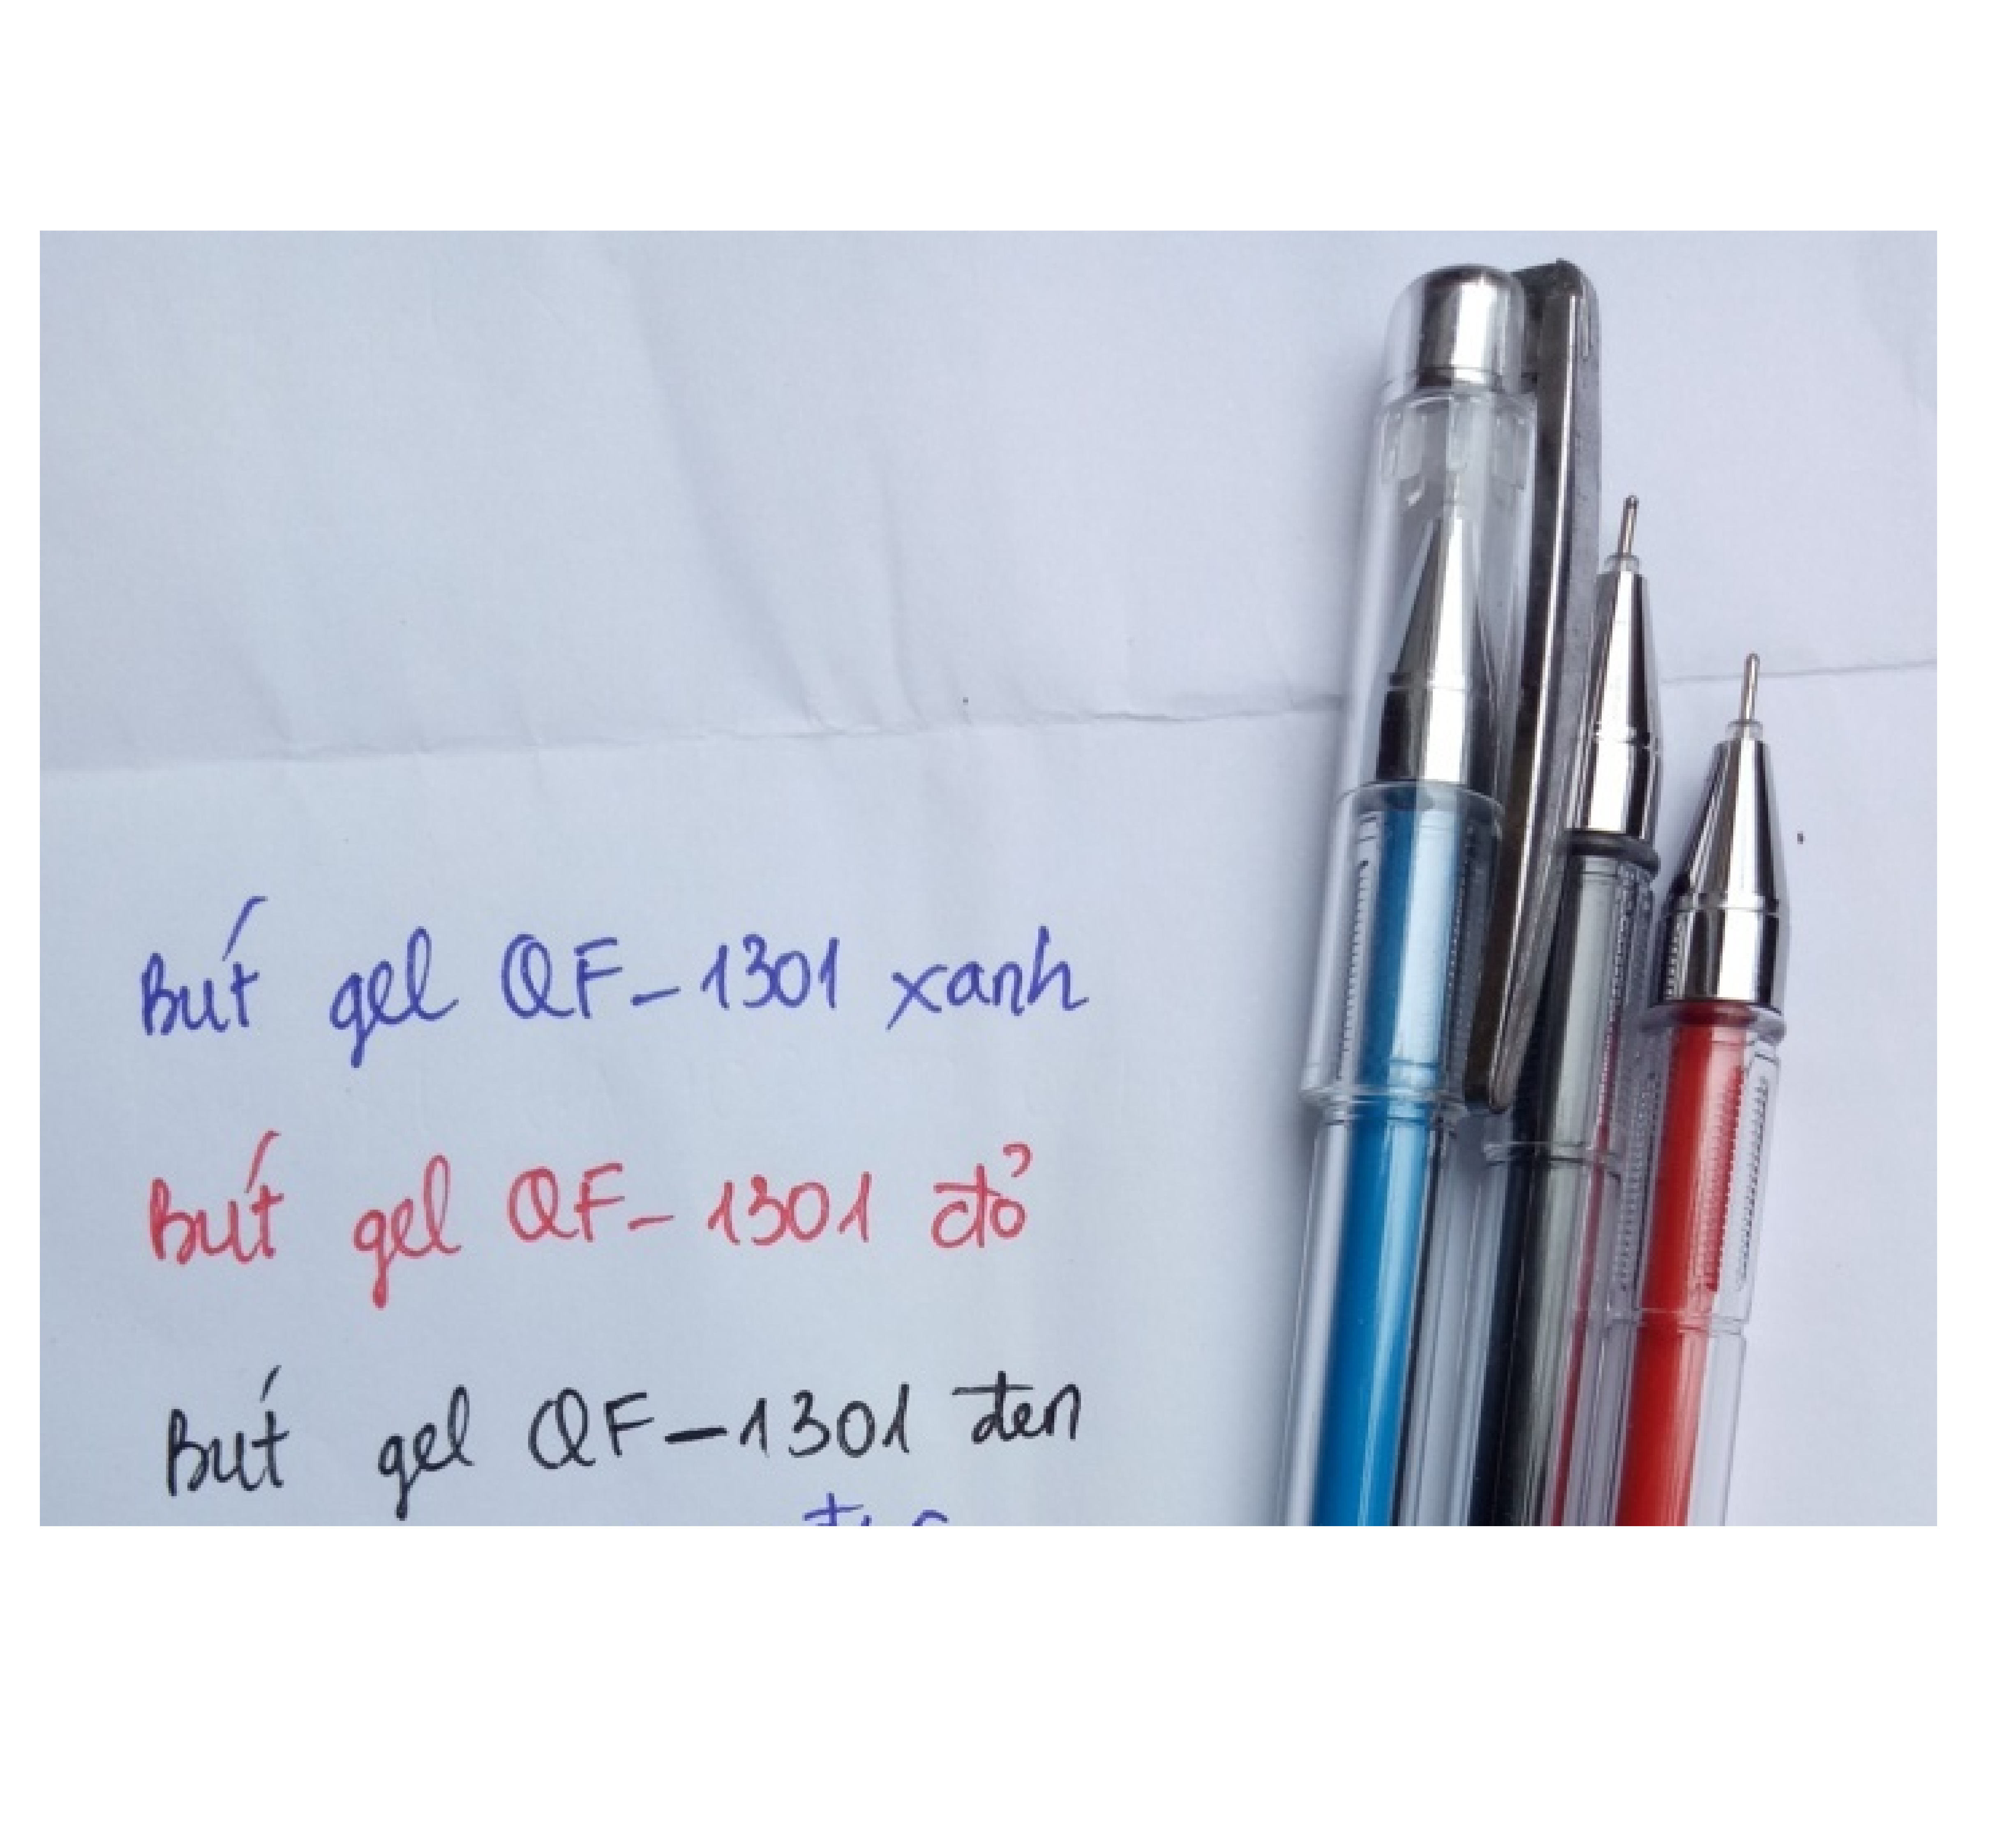 Bút gel QF-1301 xanh
Bút gel QF-1301 đỏ
Bút gel QF-1301 đen